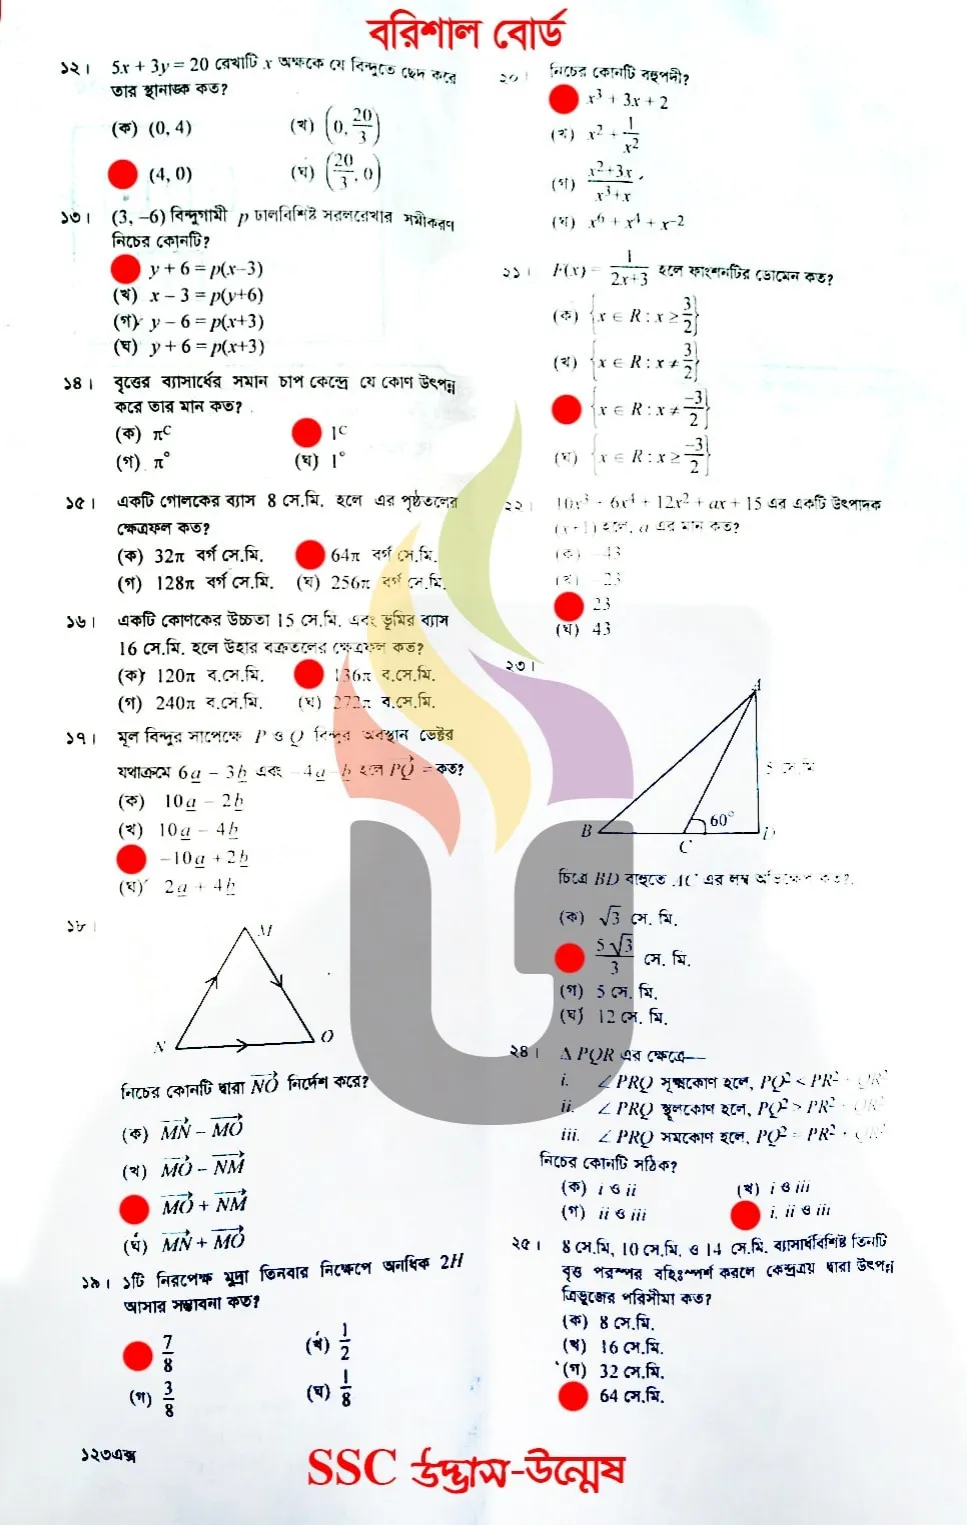 বরিশাল বোর্ড
১২। 5x + 3y = 20 রেখাটি x অক্ষকে যে বিন্দুতে ছেদ করে
তার স্থানাঙ্ক কত?
(ক) (0, 4) (খ) (0, 20/3)
(4, 0) (ঘ) (20/3, 0)
১৩। (3, –6) বিন্দুগামী p ঢালবিশিষ্ট সরলরেখার সমীকরণ
নিচের কোনটি?
y + 6 = p(x–3)
(খ) x – 3 = p(y+6)
(গ) y – 6 = p(x+3)
(ঘ) y + 6 = p(x+3)
১৪। বৃত্তের ব্যাসার্ধের সমান চাপ কেন্দ্রে যে কোণ উৎপন্ন
করে তার মান কত?
(ক) πᶜ 1ᶜ
(গ) π° (ঘ) 1°
১৫। একটি গোলকের ব্যাস 8 সে.মি. হলে এর পৃষ্ঠতলের
ক্ষেত্রফল কত?
(ক) 32π বর্গ সে.মি. 64π বর্গ সে.মি.
(গ) 128π বর্গ সে.মি. (ঘ) 256π বর্গ সে.মি.
১৬। একটি কোণকের উচ্চতা 15 সে.মি. এবং ভূমির ব্যাস
16 সে.মি. হলে উহার বক্রতলের ক্ষেত্রফল কত?
(ক) 120π ব.সে.মি. 136π ব.সে.মি.
(গ) 240π ব.সে.মি. (ঘ) 272π ব.সে.মি.
১৭। মূল বিন্দুর সাপেক্ষে P ও Q বিন্দুর অবস্থান ভেক্টর
যথাক্রমে 6a – 3b এবং –4a – b হলে PQ⃗ = কত?
(ক) 10a – 2b
(খ) 10a – 4b
–10a + 2b
(ঘ) 2a + 4b
১৮।
M
N
O
নিচের কোনটি দ্বারা NO⃗ নির্দেশ করে?
(ক) MN⃗ – MO⃗
(খ) MO⃗ – NM⃗
MO⃗ + NM⃗
(ঘ) MN⃗ + MO⃗
১৯। ১টি নিরপেক্ষ মুদ্রা তিনবার নিক্ষেপে অনধিক 2H
আসার সম্ভাবনা কত?
7/8 (খ) 1/2
(গ) 3/8 (ঘ) 1/8
১২৩এক্স
২০। নিচের কোনটি বহুপদী?
x³ + 3x + 2
(খ) x² + 1/x²
(গ) x²+3x / x³+x
(ঘ) x⁶ + x⁴ + x⁻²
২১। F(x) = 1/2x+3 হলে ফাংশনটির ডোমেন কত?
(ক) {x ∈ R : x ≥ 3/2}
(খ) {x ∈ R : x ≠ 3/2}
{x ∈ R : x ≠ –3/2}
(ঘ) {x ∈ R : x ≥ –3/2}
২২। 10x³ 6x⁴ + 12x² + ax + 15 এর একটি উৎপাদক
(x+1) হলে, a এর মান কত?
(ক) –43
(খ) –23
23
(ঘ) 43
২৩।
A
5 সে.মি
60°
B
C
D
চিত্রে BD বাহুতে AC এর লম্ব অভিক্ষেপ কত?
(ক) √3 সে. মি.
5√3/3 সে. মি.
(গ) 5 সে. মি.
(ঘ) 12 সে. মি.
২৪। Δ PQR এর ক্ষেত্রে—
i. ∠PRQ সূক্ষ্মকোণ হলে, PQ² < PR² + QR²
ii. ∠PRQ স্থূলকোণ হলে, PQ² > PR² + QR²
iii. ∠PRQ সমকোণ হলে, PQ² = PR² + QR²
নিচের কোনটি সঠিক?
(ক) i ও ii (খ) i ও iii
(গ) ii ও iii i, ii ও iii
২৫। 8 সে.মি, 10 সে.মি. ও 14 সে.মি. ব্যাসার্ধবিশিষ্ট তিনটি
বৃত্ত পরস্পর বহিঃস্পর্শ করলে কেন্দ্রত্রয় দ্বারা উৎপন্ন
ত্রিভুজের পরিসীমা কত?
(ক) 8 সে.মি.
(খ) 16 সে.মি.
(গ) 32 সে.মি.
64 সে.মি.
SSC উদ্ভাস-উন্মেষ